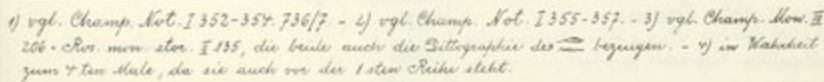 1) vgl. Champ. Not. I 352-354. 736/7. - 2) vgl. Champ. Not. I 355-357. - 3) vgl. Champ. Mon. III
206 - Ros. mon. stor. I 135, die beide auch die Dittographie des bezeugen. - 4) in Wahrheit
zum 4ten Male, da sie auch vor der 1sten Reihe steht.